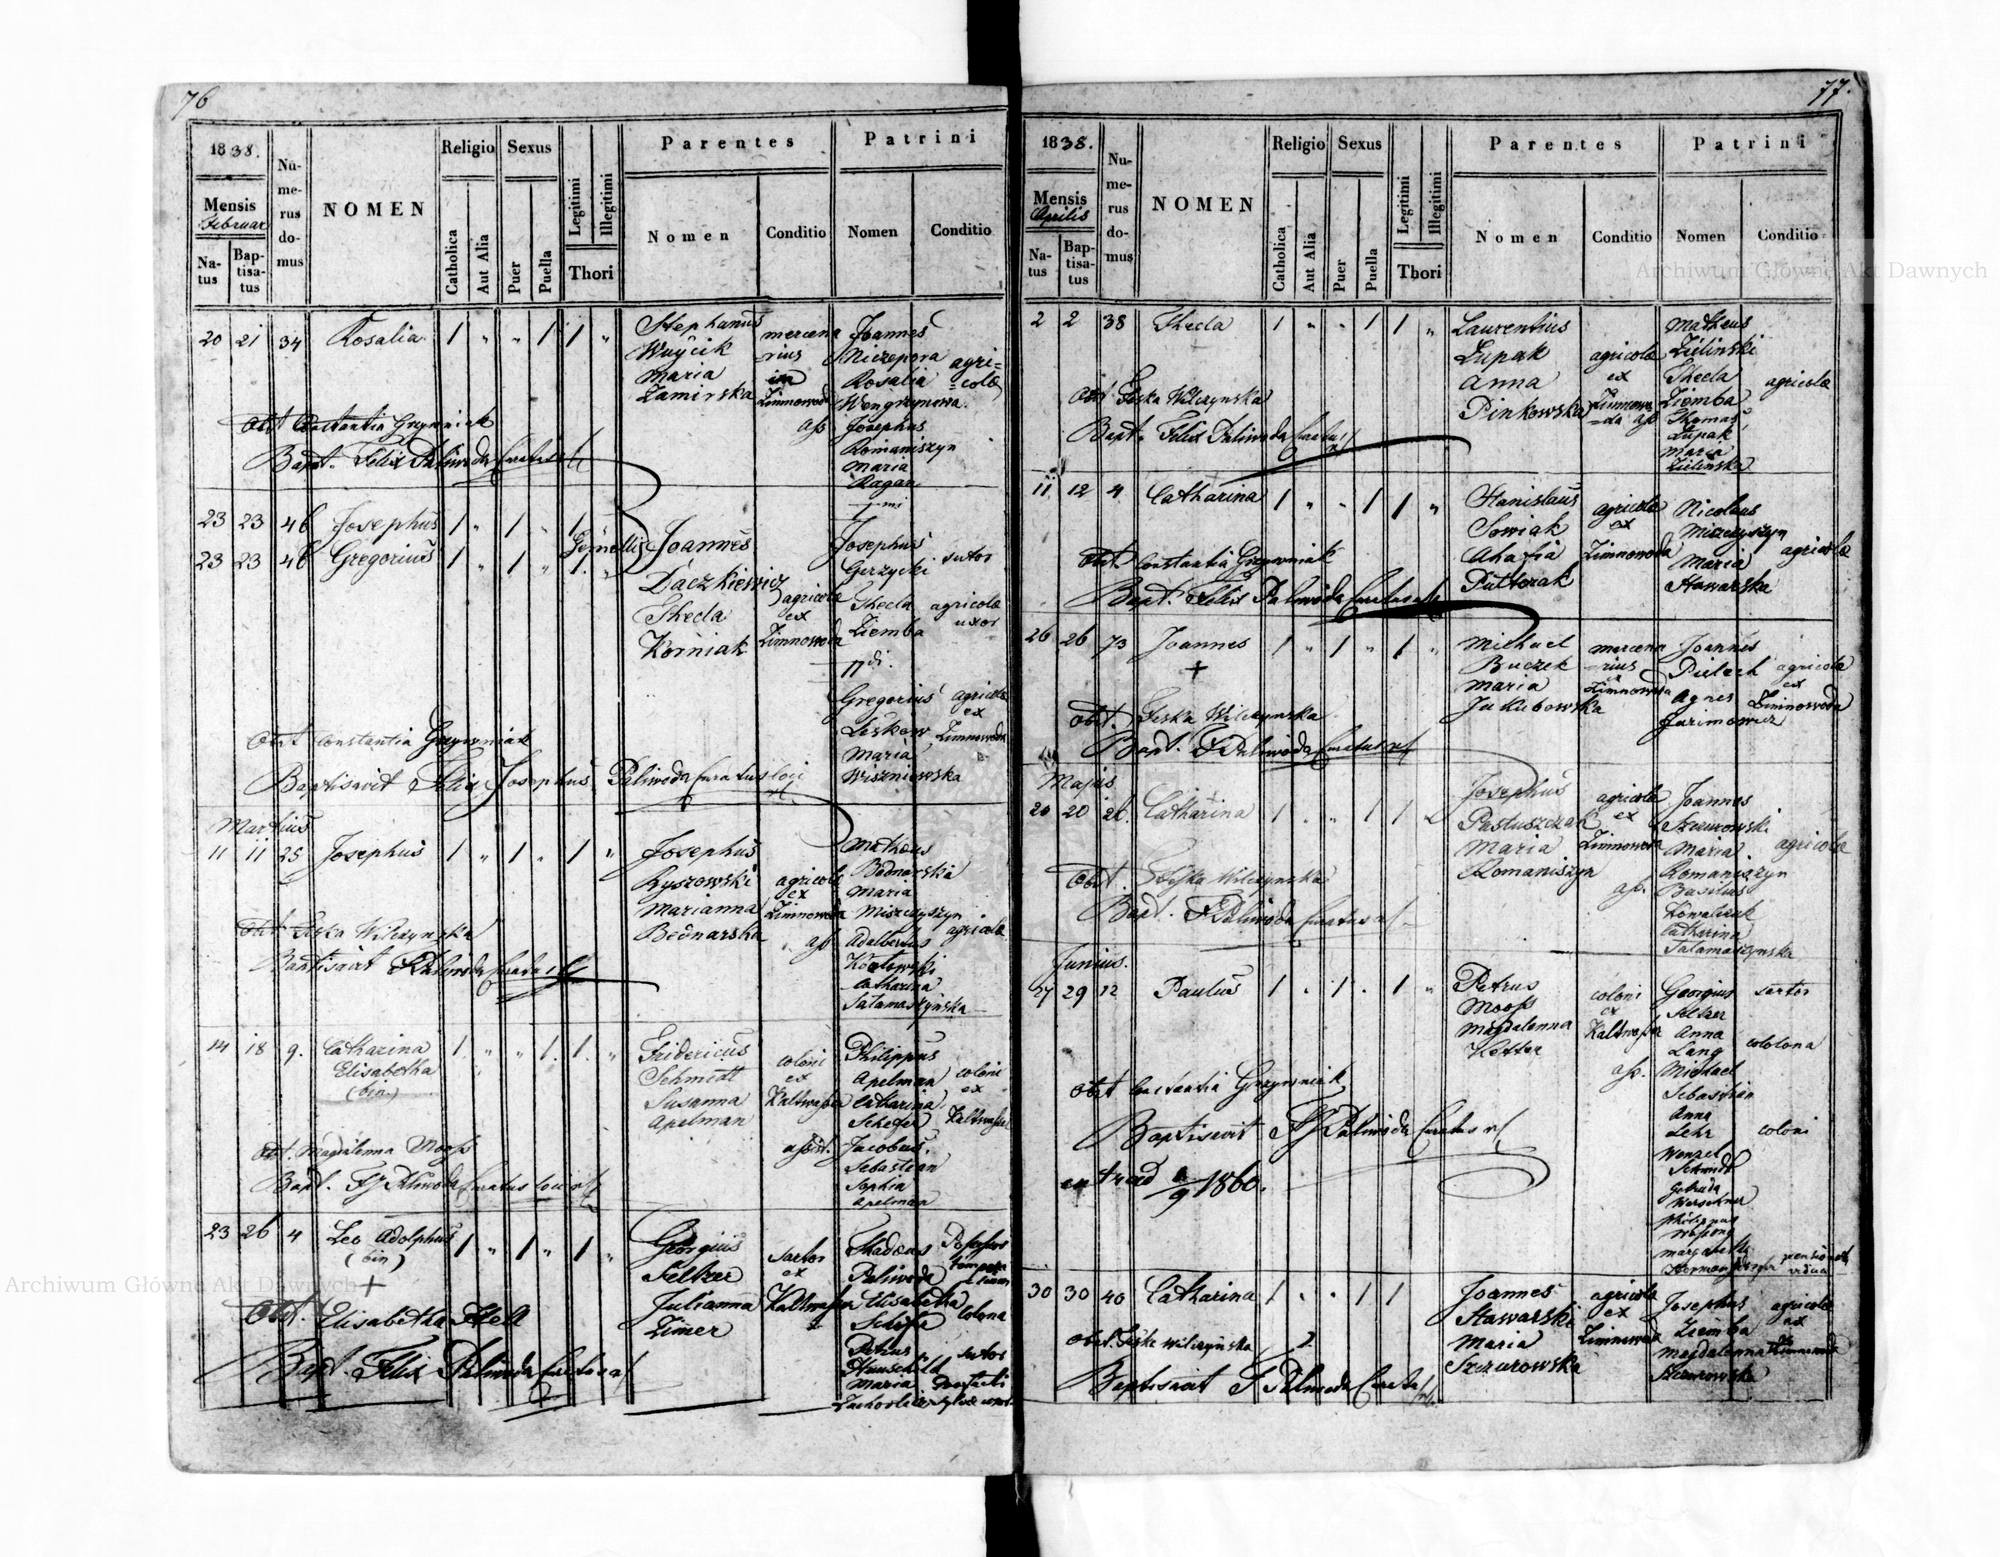 76
1838.
Mensis
Februar
Na-
tus
Bap-
tisa-
tus
Nu-
me-
rus
do-
mus
NOMEN
Religio
Catholica
Aut Alia
Sexus
Puer
Puella
Legitimi
Illegitimi
Thori
Parentes
Nomen
Conditio
Patrini
Nomen
Conditio
20 21 34 Rosalia 1 " " 1 1 "
Stephanus
Wuycik
Maria
Zamirska
mercena
rius
Zimnowoda
Joannes
Niczepora
Rosalia
Wengrzynowa
Josephus
Romaniszyn
Maria
Ragan
agri=
=colæ
Obst Constantia Grzywniak
Bapt. Felix Paliwoda Curatus
23 23 46 Josephus 1 " 1 " 1
23 23 46 Gregorius 1 " 1 " 1 "
Gemellis
Joannes
Daczkiewicz
Thecla
Korniak
agricola
ex
Zimnowoda
Josephus
Gerzycki sutor
Thecla agricolæ
Ziemba uxor
Gregorius agricola
ex
Leskow Zimnowoda
Maria
Wiszniowska
Obst Constantia Grzywniak
Baptisavit Felix Josephus Paliwoda Curatus loci
Martius
11 11 25 Josephus 1 " 1 " 1 "
Josephus
Ryszowski
Marianna
Bednarska
agricola
ex
Zimnowoda
Mathæus
Bednarski
Maria
Miszczyszyn
Adalbertus
Kozlowski
Catharina
Talamaszynska
agricolæ
Obst Feska Wilczynska
Baptisavit F Paliwoda Curatus
14 18 9. Catharina 1 " " 1. 1. "
Elisabetha
(bin)
Fridericus
Schmidt
Susanna
Apelman
coloni
ex
Kaltwasser
Philippus
Apelman
Catharina
Schefer
Jacobus
Sebastian
Sophia
Apelman
coloni
ex
Kaltwasser
Obst. Magdalena Mooss
Bapt. FJ Paliwoda Curatus loci
23 26 4 Leo Adolphus 1 " 1 " 1 "
(bin)
+
Georgius
Seltzer
Julianna
Zimer
Sartor
ex
Kaltwasser
Thadæus
Paliwoda
Elisabetha
Schefer
Petrus
Maria
colona
sutor
Obst. Elisabetha Hell
Bapt. Felix Paliwoda Curatus
77.
1838.
Mensis
Aprilis
Na-
tus
Bap-
tisa-
tus
Nu-
me-
rus
do-
mus
NOMEN
Religio
Catholica
Aut Alia
Sexus
Puer
Puella
Legitimi
Illegitimi
Thori
Parentes
Nomen
Conditio
Patrini
Nomen
Conditio
2 2 38 Thecla 1 " " 1 1 "
Laurentius
Lupak
Anna
Pinkowska
agricolæ
ex
Zimnowo
=da
Matheus
Zielinski
Thecla
Ziemba
Thomas
Lupak
Maria
Zielinska
agricolæ
Obst Feska Wilczynska
Bapt. Felix Paliwoda Curatus
11 12 4 Catharina 1 " " 1 1 "
Stanislaus
Sowiak
Ahafia
Puttorak
agricolæ
ex
Zimnowoda
Nicolaus
Miszczyszyn
Maria
Stawarska
agricolæ
Obst Constantia Grzywniak
Bapt. Felix Paliwoda Curatus
26 26 73 Joannes 1 " 1 " 1 "
+
Michael
Buczek
Maria
Jakubowska
mercena
rius
ex
Zimnowoda
Joannes
Pielech
Agnes
Jarimowicz
agricolæ
ex
Zimnowoda
Obst. Feska Wilczynska
Bapt. F Paliwoda Curatus
Majus
20 20 26. Catharina 1 " " 1 1
Josephus
Pastuszczak
Maria
Romaniszyn
agricola
ex
Zimnowoda
Joannes
Szczurowski
Maria
Romaniszyn
Basilius
Kowalczuk
Catharina
Talamaszynska
agricolæ
Obst. Feska Wilczynska
Bapt. F Paliwoda Curatus
Junius.
27 29 12 Paulus 1 " 1 " 1 "
Petrus
Mooss
Magdalenna
Ketter
coloni
ex
Kaltwasser
Georgius
Seltzer
Anna
Lang
Michael
Sebastian
Anna
Lehr
Wenzel
Schmidt
sartor
colona
coloni
Obst Constantia Grzywniak
Baptisavit FJ Paliwoda Curatus
extrad 6/9 1860.
30 30 40 Catharina 1 " " 1 1
Joannes
Stawarski
Maria
Szczurowska
agricola
ex
Zimnowoda
Josephus
Ziemba
Magdalenna
Szczurowska
agricolæ
ex
Zimnowoda
Obst. Feska Wilczynska
Baptisavit F Paliwoda Curatus
Archiwum Główne Akt Dawnych
Archiwum Główne Akt Dawnych